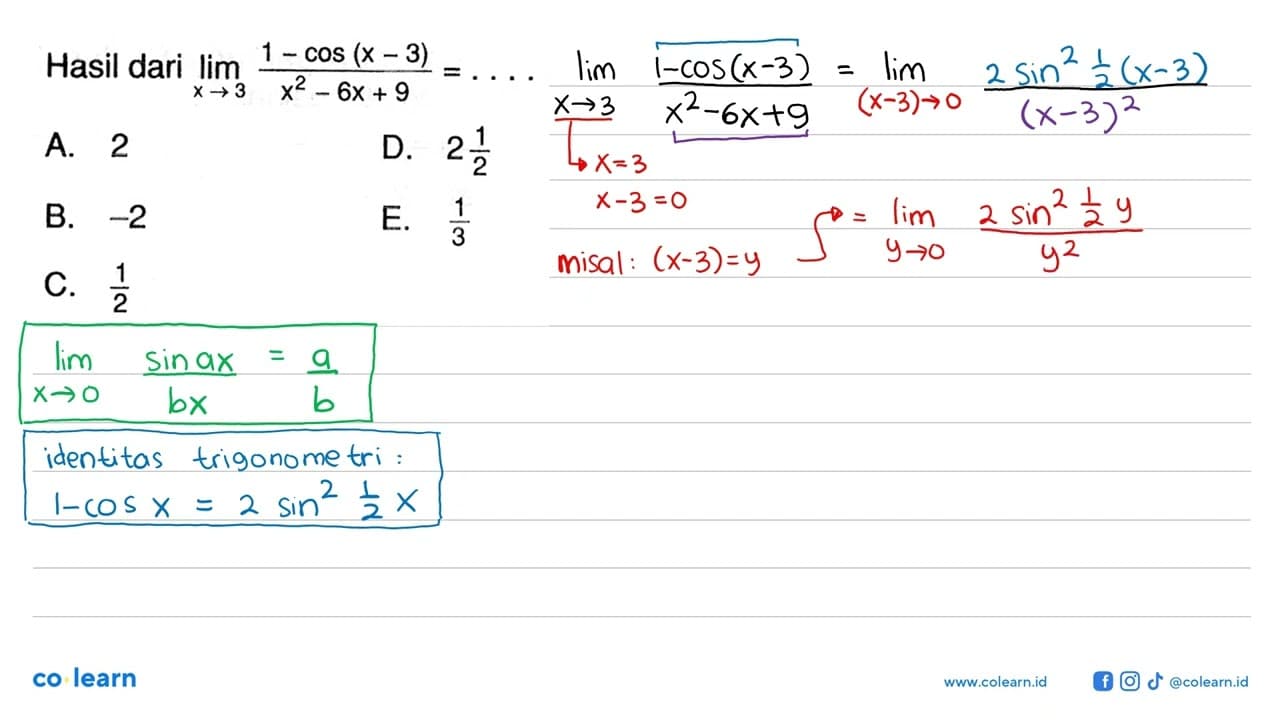 Hasil dari lim x → 3 (1 – cos (x – 3))/(x² – 6x + 9) = . . . .
A. 2
B. –2
C. 1/2
D. 2 1/2
E. 1/3
lim x→3 (1-cos(x-3))/(x²-6x+9) = lim (x-3)→0 (2 sin² 1/2 (x-3))/((x-3)²)
x=3
x-3=0
misal: (x-3)=y
= lim y→0 (2 sin² 1/2 y)/(y²)
lim x→0 (sin ax)/(bx) = a/b
identitas trigonometri :
1-cos x = 2 sin² 1/2 x
co learn
www.colearn.id
@colearn.id